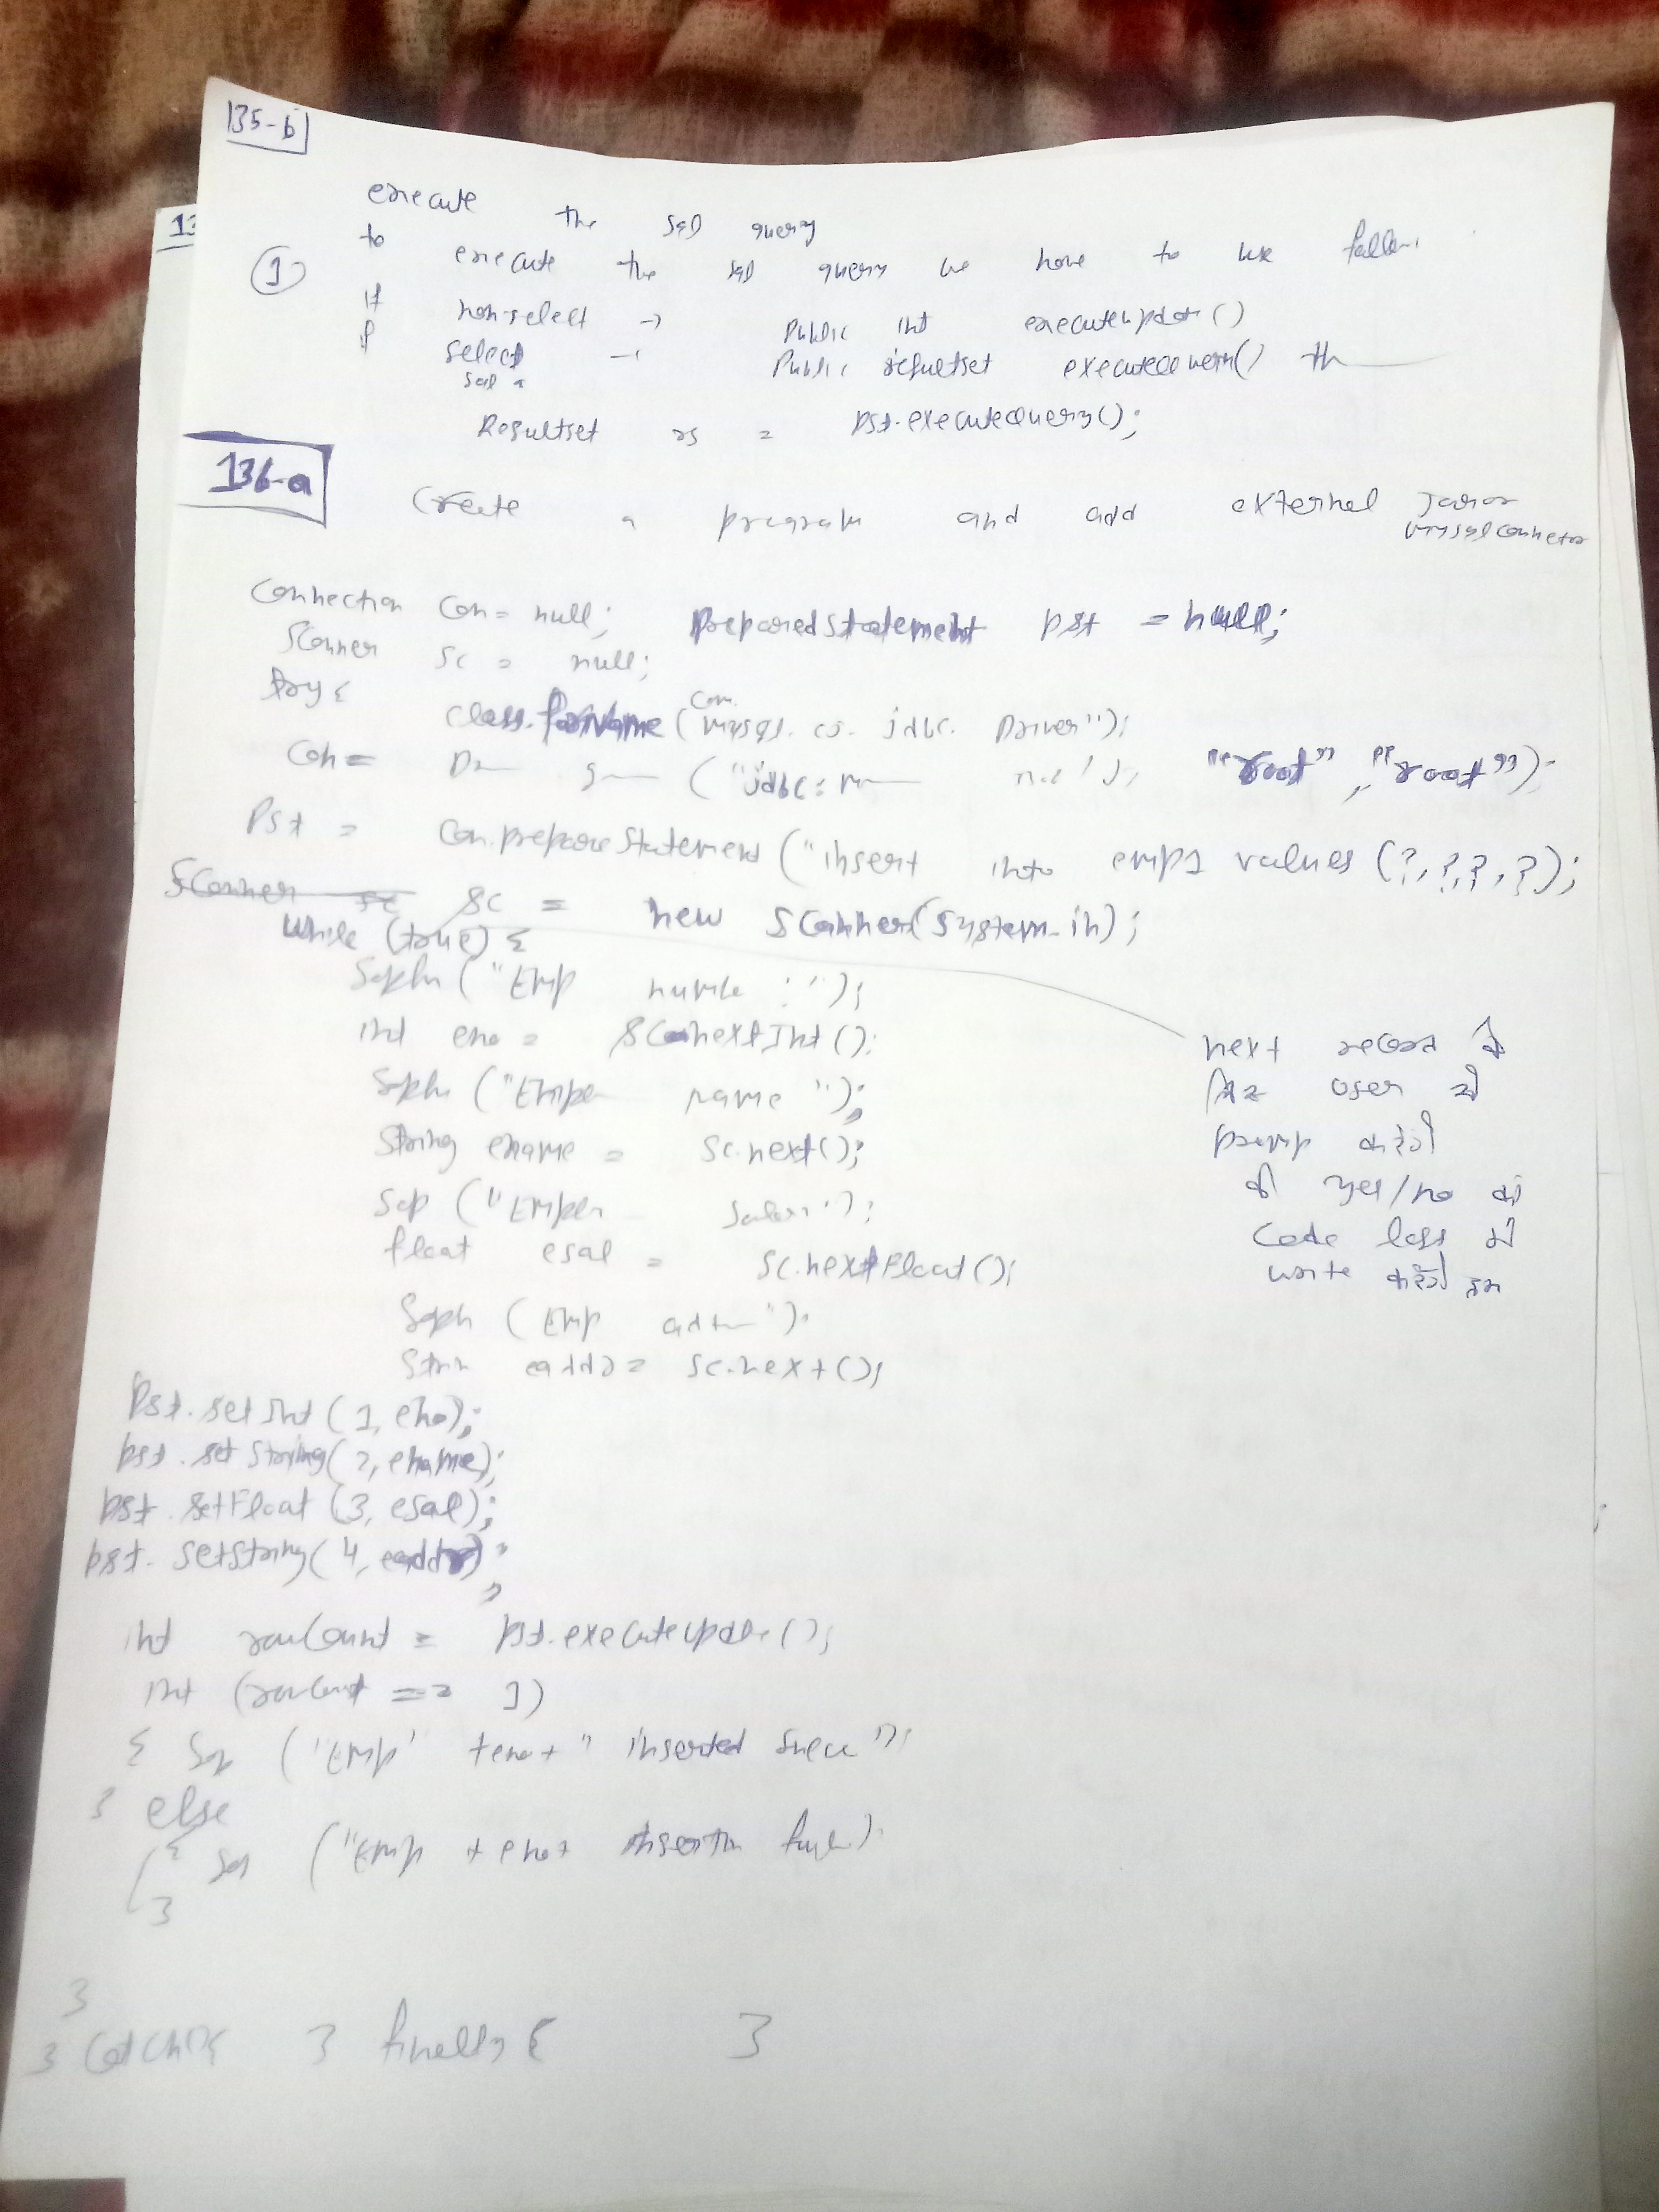 135-b
execute the sql query
① to execute the sql query we have to use follow.
if non-select → Public int executeupdate()
if select → Public resultset executeQuery() th
sql
Resultset rs = pst.executeQuery();
136-a
Create a program and add external Jar or
mysql connector
Connection con = null; PreparedStatement pst = null;
Scanner sc = null;
try {
class.forName("com.mysql.cj.jdbc.Driver");
Con = D g ("jdbc:m "root", "root");
Pst = con.prepareStatement("insert into emp1 values (?,?,?,?);
Scanner sc sc = new Scanner(System.in);
While (true) {
Sopln ("Emp numbe :");
int eno = sc.nextInt();
Sopln ("Empe name ");
String ename = sc.next();
Sop ("Empe salar");
float esal = sc.nextFloat();
Sopln (Emp add ");
Strin eaddr = sc.next();
next record के
लिए user से
promp करेंगे
की yes/no का
Code loss में
write करेंगे हम
Pst.setInt (1, eno);
pst.setString(2, ename);
pst.setFloat (3, esal);
pst.setString(4, eaddr);
int rowCount = pst.executeUpdate();
int (rowCount == 1)
{ Sop ("Emp" +eno+ " inserted succ ");
} else
{ Sop ("Emp +eno+ insertion )
}
}
} Catch(){ } finally { }